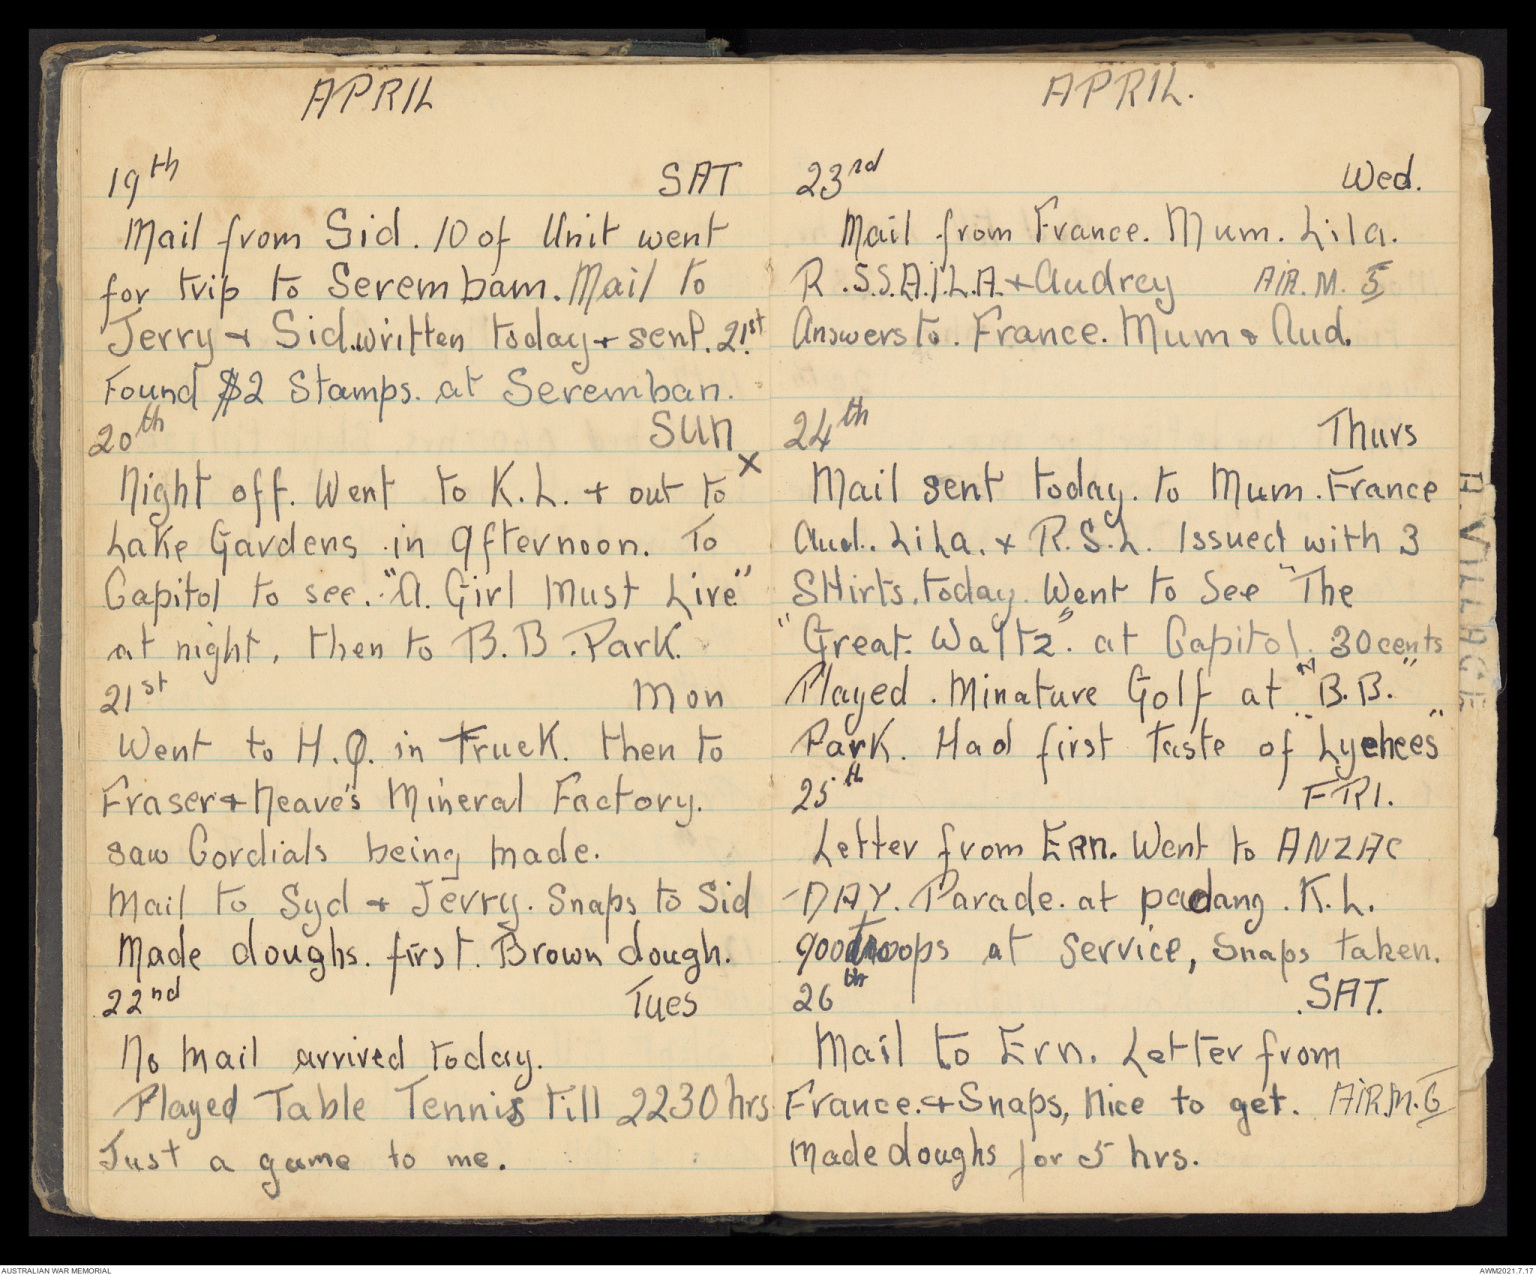 APRIL
19th SAT
Mail from Sid. 10 of Unit went
for trip to Serembam. Mail to
Jerry + Sid. written today + sent. 21st.
Found $2 Stamps. at Seremban.
20th SUN
Night off. Went to K.L. + out to x
Lake Gardens in afternoon. To
Capitol to see. "A. Girl Must Live"
at night, then to B.B. Park.
21st Mon
Went to H.Q. in Truck. then to
Fraser + Neave's Mineral Factory.
saw Cordials being made.
Mail to Syd + Jerry. Snaps to Sid
Made doughs. first. Brown dough.
22nd Tues
No Mail arrived today.
Played Table Tennis till 2230 hrs
Just a game to me.
APRIL.
23rd Wed.
Mail from France. Mum. Lila.
R.S.S.A.I.L.A. + Audrey AIR. M. 5
Answers to. France. Mum & Aud.
24th Thurs
Mail sent today. to Mum. France
Aud.. Lila. + R.S.L. Issued with 3
Shirts. today. Went to See "The
"Great. Waltz". at Capitol. 30 cents
Played. Minature Golf at "B.B."
Park. Had first taste of "Lychees"
25th FRI.
Letter from ERN. Went to ANZAC
-DAY. Parade. at padang. K.L.
900 troops at Service, Snaps taken.
26th SAT.
Mail to Ern. Letter from
France. + Snaps, Nice to get. AIR.M. 6
Made doughs for 5 hrs.
A. VILLAGE
AUSTRALIAN WAR MEMORIAL
AWM2021.7.17